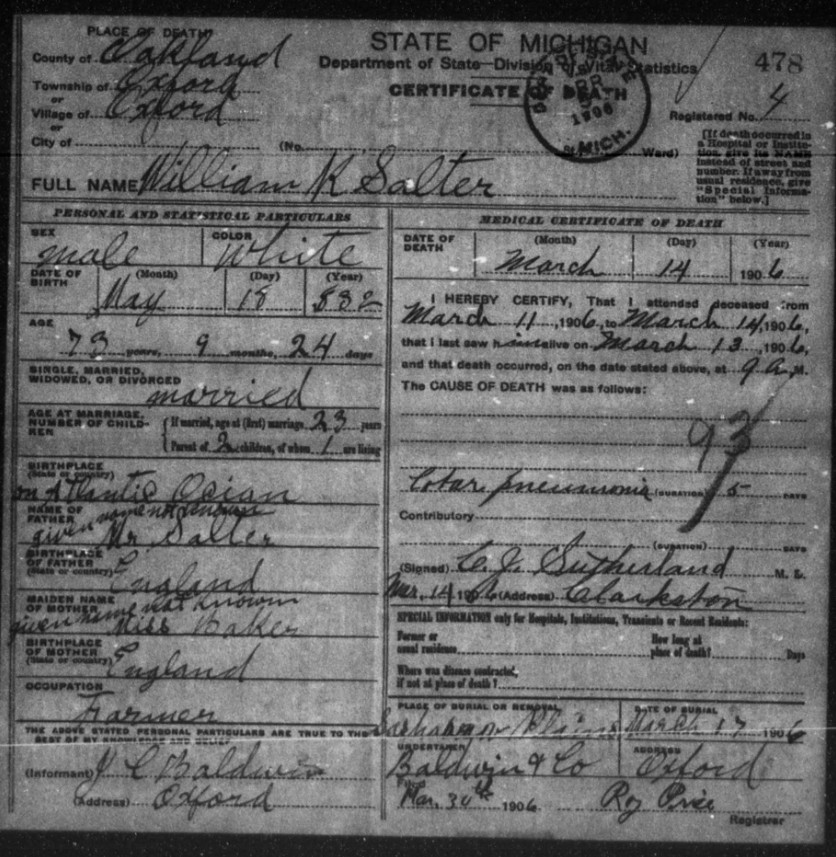 PLACE OF DEATH
County of Oakland
Township of Oxford
or
Village of Oxford
or
City of
STATE OF MICHIGAN
Department of State—Division of Vital Statistics
CERTIFICATE OF DEATH
478
Registered No. 4
1906
MICH.
(No. Ward)
[If death occurred in
a Hospital or Institu-
tion, give its NAME
instead of street and
number. If away from
usual residence, give
"Special Informa-
tion" below.]
FULL NAME William K Salter
PERSONAL AND STATISTICAL PARTICULARS
SEX male
COLOR White
DATE OF BIRTH
(Month) (Day) (Year)
May 18 1832
AGE
73 years, 9 months, 24 days
SINGLE, MARRIED,
WIDOWED, OR DIVORCED
married
AGE AT MARRIAGE,
NUMBER OF CHILD-
REN
If married, age at (first) marriage 23 years
Parent of 2 children, of whom 1 are living
BIRTHPLACE
(State or country)
on Atlantic Ocian
NAME OF
FATHER
given name not known
Mr. Salter
BIRTHPLACE
OF FATHER
(State or country)
England
MAIDEN NAME
OF MOTHER
given name not known
Miss Baker
BIRTHPLACE
OF MOTHER
(State or country)
England
OCCUPATION
Farmer
THE ABOVE STATED PERSONAL PARTICULARS ARE TRUE TO THE
BEST OF MY KNOWLEDGE AND BELIEF
(Informant) J C Baldwin
(Address) Oxford
MEDICAL CERTIFICATE OF DEATH
DATE OF
DEATH
(Month) (Day) (Year)
March 14 1906
I HEREBY CERTIFY, That I attended deceased from
March 11, 1906, to March 14, 1906,
that I last saw him alive on March 13, 1906,
and that death occurred, on the date stated above, at 9 A.M.
The CAUSE OF DEATH was as follows:
93
Lobar pneumonia (DURATION) 5 DAYS
Contributory
(DURATION) DAYS
(Signed) C. J. Sutherland M. D.
Mar. 14 1906 (Address) Clarkston
SPECIAL INFORMATION only for Hospitals, Institutions, Transients or Recent Residents:
Former or
usual residence
How long at
place of death? Days
Where was disease contracted,
if not at place of death?
PLACE OF BURIAL OR REMOVAL
Plains
DATE OF BURIAL
March 17 1906
UNDERTAKER
Baldwin & Co
ADDRESS
Oxford
Filed
Mar. 30th 1906. Roy Price
Registrar